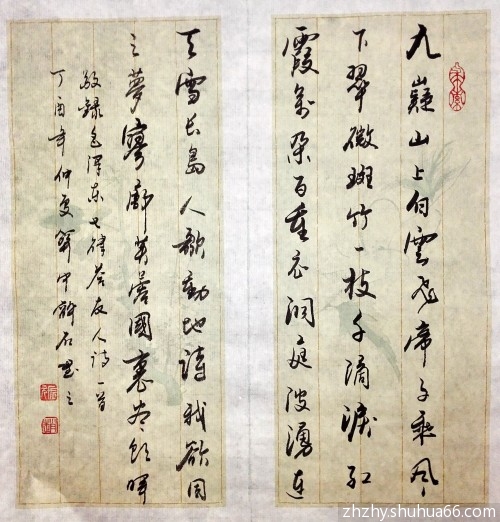 九嶷山上白雲飛帝子乘风
下翠微斑竹一枝千滴淚红
霞萬朵百重衣洞庭波湧連
天雪長島人歌動地詩我欲因
之夢寥廓芙蓉國裏盡朝暉
敬錄毛澤東七律答友人詩一首
丁酉年仲夏
書之
zhzhy.shuhua66.com